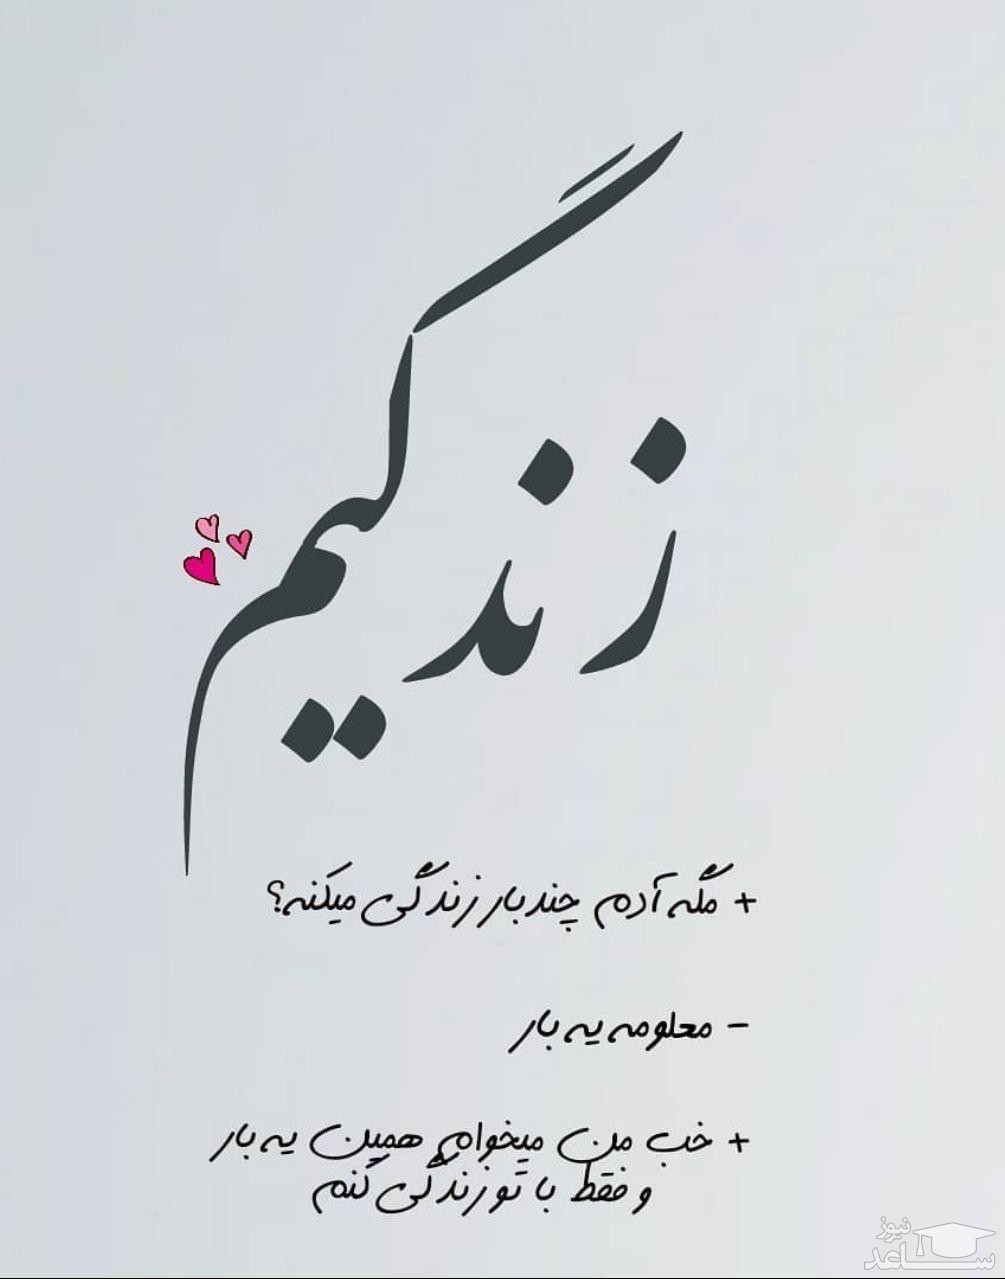 زندگیم
+ مگه آدم چندبار زندگی میکنه؟
- معلومه یه بار
+ خب من میخوام همین یه بار
و فقط با تو زندگی کنم
نیوز
ساعد